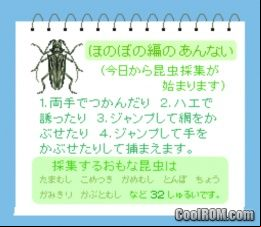 ほのぼの編のあんない
(今日から昆虫採集が
始まります)
1.両手でつかんだり 2.ハエで
誘ったり 3.ジャンプして網をか
ぶせたり 4.ジャンプして手を
かぶせたりして捕まえます。
採集するおもな昆虫は
たまむし こめつき かめむし とんぼ ちょう
かみきり かぶとむし など 32 しゅるいです。
CoolROM.com